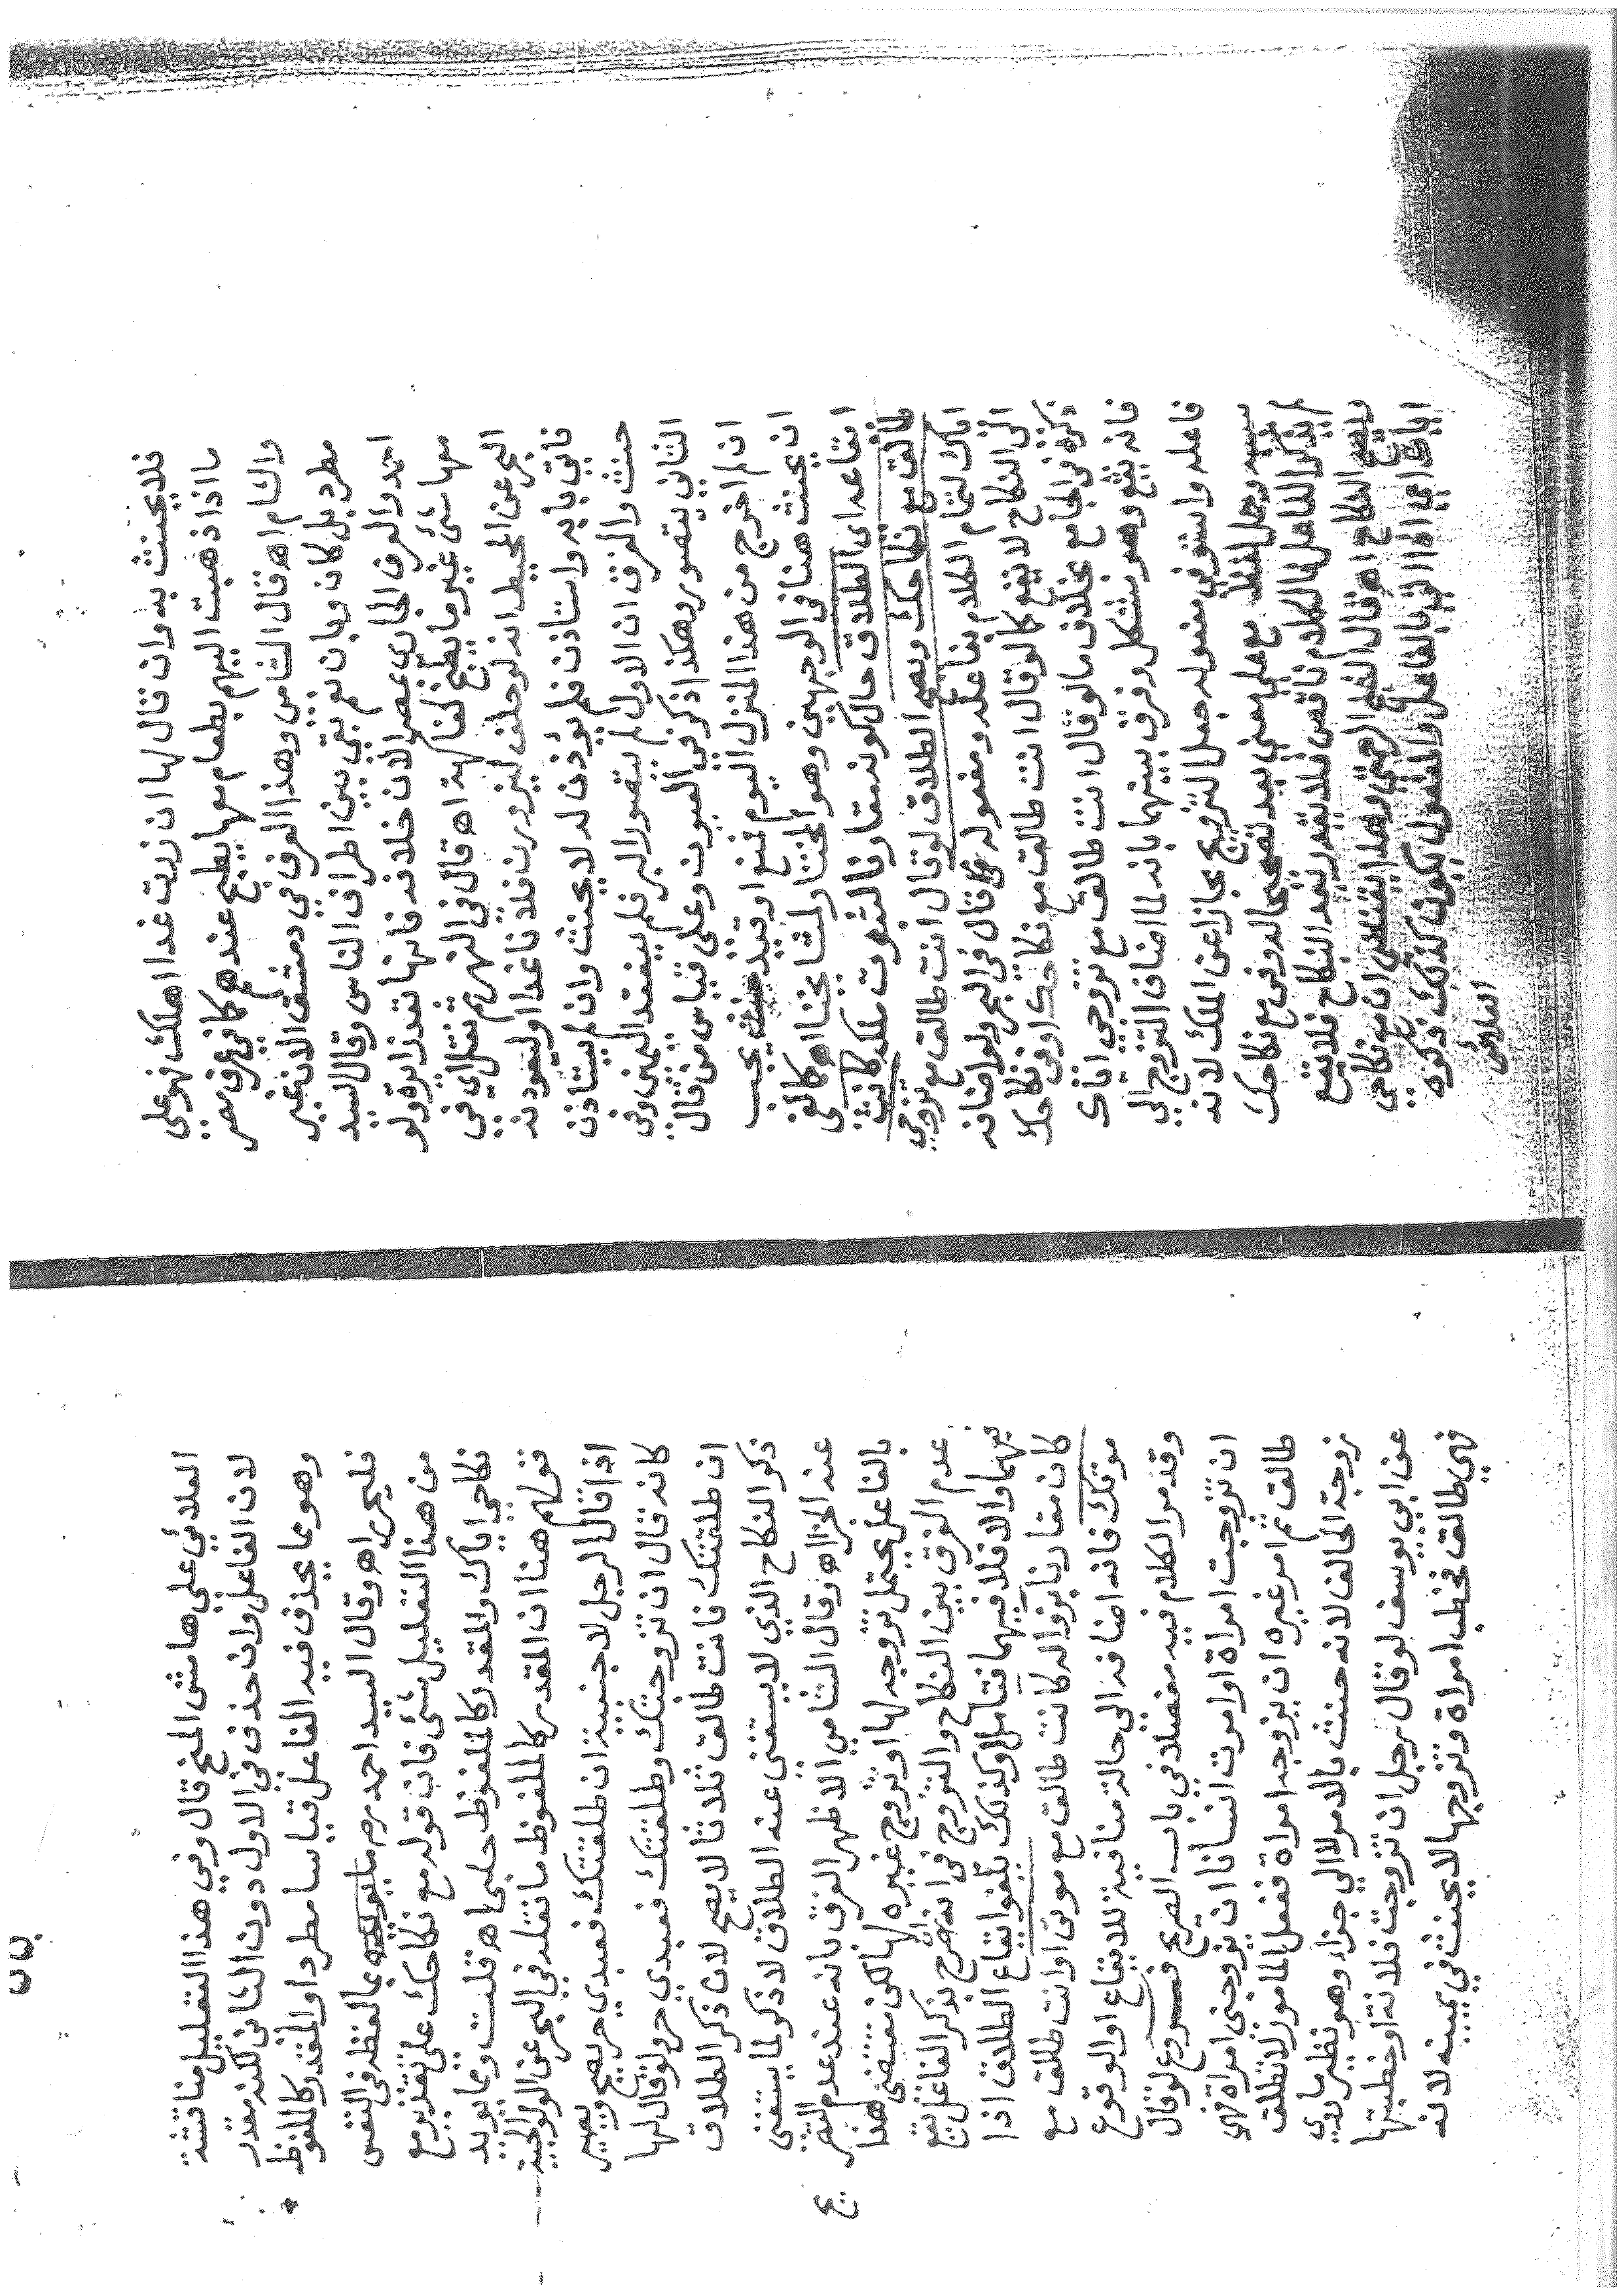 فلا يحنث به وان قال لها ان زرت غدا اهلك فهو على
ما اذا ذهبت اليهم بطعام معها يطبخ عندهم كما في عرف مصر
والشام اه قال الشامي وهذا العرف في دمشق الان غير
مطرد بل كان وبان نعم بقي بين اطراف الناس وقال السيد
احمد والعرف الجاري بمصر الان خلافه فانها تعد زايرة ولو
معها شئ غير ما يطبخ كفاكهة اه قال في النهر ثم نقل اي في
البحر عن المحيط انه لو حلف ليزورن فلانا غدا وليعودنه
فاتى بابه واستاذن فلم يؤذن له لا يحنث وان لم يستاذن
حنث والفرق ان الاول لم يتصور البر فلم ينعقد اليمين وفي
الثاني يتصور وهكذا ذكر في العيون وعلى قياس من قال
ان لم اخرج من هذا المنزل اليوم فمنع او قيد حنث يجب
ان يحنث هنا في الوجهين وهو المختار لمشايخنا اه كالفى
ايقاعه اى الطلاق حال كونه مقارنا لثبوت ملك كانت
طالق مع نكاحك ويصح الطلاق لو قال انت طالق مع تزوجي
اياك لتمام الكلام بفاعله ومفعوله كما قال في البحر ولو اضافه
الى النكاح لا يقع كما لو قال انت طالق مع نكاحك او في نكاحك
ذكره في الجامع بخلاف ما لو قال انت طالق مع تزوجي اياك
فانه يقع وهو مشكل وفرق بينهما بانه لما اضاف التزوج الى
فاعله واستوفى مفعوله جعل التزوج مجازا عن الملك لانه
سببه وحمل لفظ مع على معنى بعد تصحيحا له وفي مع نكاحك
لم يذكر الفاعل فالكلام ناقص فلا يقدر بعد النكاح فلا يقع
ويصح النكاح اه قال الرحمتي وهذا يقتضي ان مع نكاحي
اياك اي اذا اتي بالفاعل والمفعول يكون كذلك وذكره
العلائي
العلائي على هامش المنح قال وفي هذا التعليل مناقشة
لان الفاعل وان حذف في الاول دون الثاني لكنه مقدر
وهو مما يحذف فيه الفاعل قياسا مطردا والمقدر كالملفوظ
فليحرر اه وقال السيد احمد بما لفظه في النفس
من هذا التعليل شئ فان قوله مع نكاحك على تقدير مع
نكاحي اياك والمقدر كالملفوظ حلبي اه قلت ومما يويد
قولهم هنا ان المقدر كالملفوظ ما نقله في البحر عن الولوالجية
اذا قال الرجل لاجنبية ان طلقتك فعبدي حر يصح ويصير
كانه قال ان تزوجتك وطلقتك فعبدي حر ولو قال لها
ان طلقتك فانت طالق ثلاثا لا يصح لان ذكر الطلاق
ذكر النكاح الذي لا يستغنى عنه الطلاق لا ذكر لما يستغنى
عنه الجزا اه وقال الشامي الاظهر الفرق بانه عند عدم التصريح
بالفاعل يحتمل تزوجه لها او تزوج غيره لها لكن مقتضى هذا
عدم الفرق بين النكاح والتزوج في انه ان صرح بذكر الفاعل يقع
فيهما والا فلا فيهما فتامل وكذلك يلغو ايقاع الطلاق اذا
كان مقارنا بزواله كانت طالق مع موتي او انت طالق مع
موتك فانه اضافه الى حالة منافية للايقاع او الوقوع
وقد مر الكلام فيه مفصلا في باب الصريح فسروع لو قال
ان تزوجت امراة او امرت انسانا ان يزوجني امراة فهي
طالق ثم امر غيره ان يزوجه امراة ففعل المامور لا تطلق
زوجة الحالف لانه حنث بالامر لا الي جزاء وهو نظير ما روي
عن ابي يوسف لو قال رجل ان تزوجت فلانة او خطبتها
فهي طالق فخطب امراة وتزوجها لا يحنث في يمينه لانه